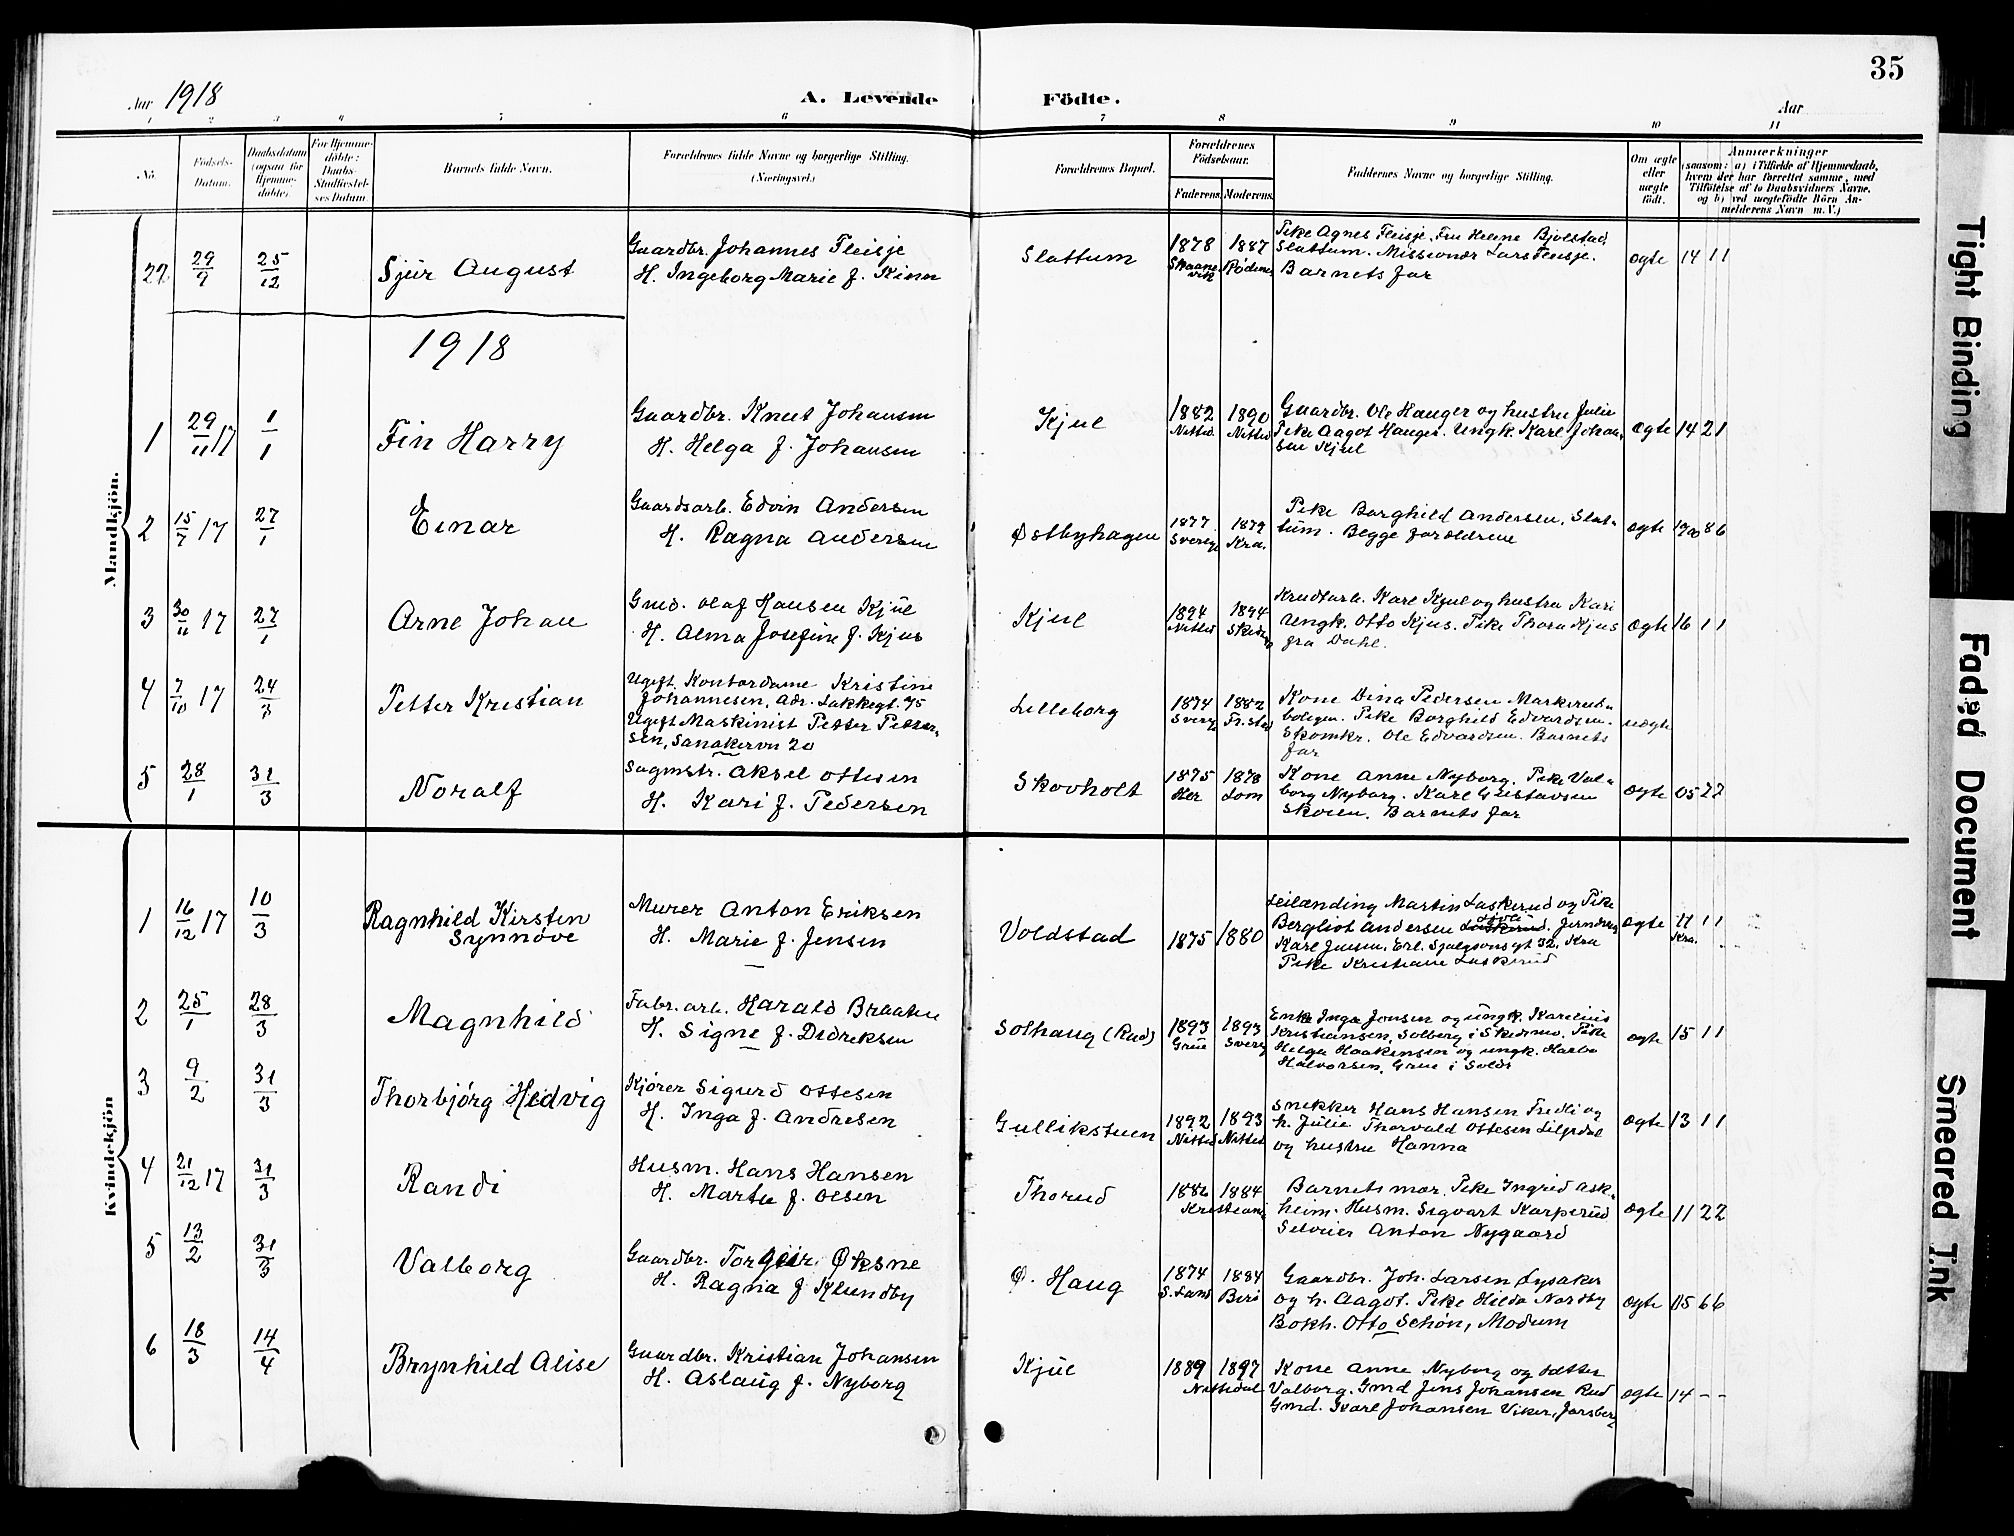 35
Aar 1918
A. Levende Födte.
Aar
1 2 3 4 5 6 7 8 9 10 11
No.
Födsels-Datum.
Daabsdatum (ogsaa for Hjemmedøbte).
For Hjemmedøbte: Daabs-Stadfæstelses Datum.
Barnets fulde Navn.
Forældrenes fulde Navne og borgerlige Stilling. (Næringsvei.)
Forældrenes Bopæl.
Forældrenes Födselsaar.
Faderens. Moderens.
Faddernes Navne og borgerlige Stilling.
Om ægte eller uægte födt.
Anmærkninger
(saasom: a) i Tilfælde af Hjemmedaab,
hvem der har forrettet samme, med
Tilföielse af to Daabsvidners Navne,
og b) ved uægtefödte Börn Anmelderens Navn m. V.)
Mandkjön.
22 29/9 25/12 Sjur August
Gaardbr. Johannes Fleisje
H. Ingeborg Marie f. Kinn
Slattum
1878 1887
Skaanevik Rødenes
Pike Agnes Fleisje. Fru Helene Bjølstad,
Slattum. Missionær Lars Fleisje.
Barnets far
ægte 14 1 1
1918
1 29/11 17 1/1 Fin Harry
Gaardbr. Knut Johansen
H. Helga f. Johansen
Kjul
1882 1890
Nitted. Nitted
Gaardbr. Ole Hauger og hustru Julie
Pike Aagot Hauger. Ungk. Karl Johansen
Kjul
ægte 14 2 1
2 15/7 17 27/1 Einar
Gaardsarb. Edvin Andersen
H. Ragna Andersen
Østbyhagen
1877 1879
Sverige Kra.
Pike Borghild Andersen, Slattum.
Begge forældrene
ægte 1900 8 6
3 30/11 17 27/1 Arne Johan
Gmd. Olaf Hansen Kjul
H. Alma Josefine f. Kjus
Kjul
1894 1894
Nitted Skedsm
Krudtarb. Karl Kjul og hustru Kari
Ungk. Otto Kjus. Pike Thora Kjus
fra Dahl.
ægte 16 1 1
4 7/10 17 24/3 Petter Kristian
Ugift Kontordame Kristine
Johannesen, Adr. Lakkegt. 75
Ugift Maskinist Petter Pettersen,
Sanakervn 20
Lilleborg
1874 1882
Sverg Fr.stad
Kone Dina Pedersen Markerudbolegen.
Pike Borghild Edvardsen.
Skomkr. Ole Edvardsen. Barnets
far
uægte
5 28/1 31/3 Noralf
Sagmstr. Aksel Ottesen
H. Kari f. Pedersen
Skovholt
1875 1878
Her Lom
Kone Anne Nyborg. Pike Valborg
Nyborg. Karl Gustavsen
Skoien. Barnets far
ægte 05 2 2
Kvindekjön
1 16/12 17 10/3 Ragnhild Kirsten
Synnøve
Murer Anton Eriksen
H. Marie f. Jensen
Voldstad
1875 1880
Leilænding Martin Laskerud og Pike
Bergliot Andersen
Karl Jensen, Erl. Sjalgsonsgt 32, Kra
Pike Kristiane Laskerud
ægte 11 1 1
Kra.
2 25/1 28/3 Magnhild
Fabr.arb. Harald Braaten
H. Signe f. Didriksen
Solhaug (Rud)
1893 1893
Grue Sverg
Enke Inga Jensen og ungk. Karelius
Kristiansen, Solberg i Skedsmo. Pike
Helga Haakensen og ungk. Harbo
Halvorsen, Grue i Solør
ægte 15 1 1
3 9/2 31/3 Thorbjørg Hedvig
Kjører Sigurd Ottesen
H. Inga f. Andresen
Gullikstuen
1892 1893
Nitted Nitted
Snekker Hans Hansen Fredli og
h. Julie Thorvald Ottesen Liljedal
og hustru Hanna
ægte 13 1 1
4 21/12 17 31/3 Randi
Husm. Hans Hansen
H. Marte f. Olsen
Thorud
1882 1884
Kristiania
Barnets mor. Pike Ingrid Askheim.
Husm. Sigvart Karperud
Selveier Anton Nygaard
ægte 11 2 2
5 13/2 31/3 Valborg
Gaardbr. Torgeir Øksne
H. Ragna f. Klundby
Ø. Haug
1874 1884
S. Land Biri
Gaardbr. Joh. Larsen Lysaker
og h. Aagot. Pike Hilda Nordby
Bokh. Otto Schøn, Modum
ægte 05 6 6
6 18/3 14/4 Brynhild Alise
Gaardbr. Kristian Johansen
H. Aslaug f. Nyborg
Kjul
1889 1897
Nittedal
Kone Anne Nyborg og datter
Valborg. Gmd Jens Johansen Rud
Gmd. Karl Johansen Viker, Jarsberg
ægte 14 - -
Tight Binding
Faded Document
Smeared Ink